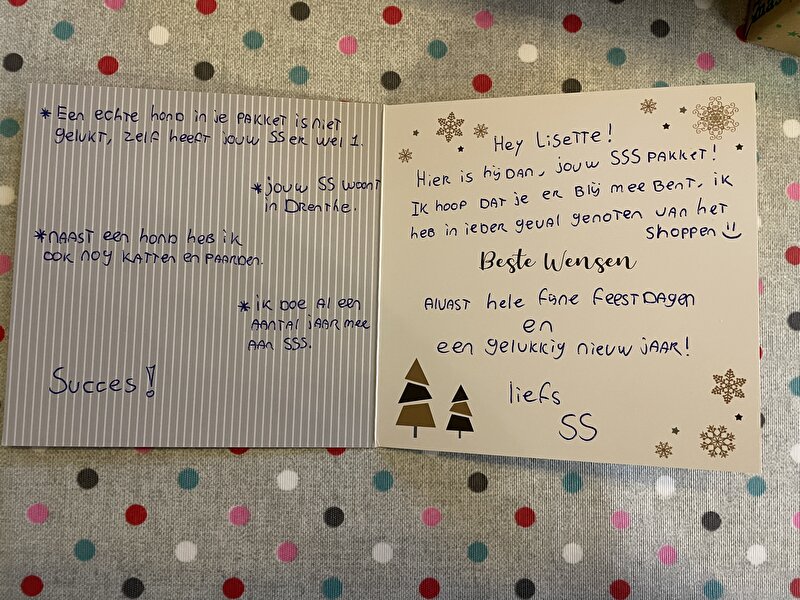 * Een echte hond in je pakket is niet
gelukt, zelf heeft jouw SS er wel 1.
* jouw SS woont
in Drenthe.
* naast een hond heb ik
ook nog katten en paarden.
* ik doe al een
aantal jaar mee
aan SSS.
Succes!
Hey Lisette!
Hier is hij dan, jouw SSS pakket!
Ik hoop dat je er blij mee bent, ik
heb in ieder geval genoten van het
shoppen
Beste Wensen
Alvast hele fijne feestdagen
en
een gelukkig nieuw jaar!
liefs
SS